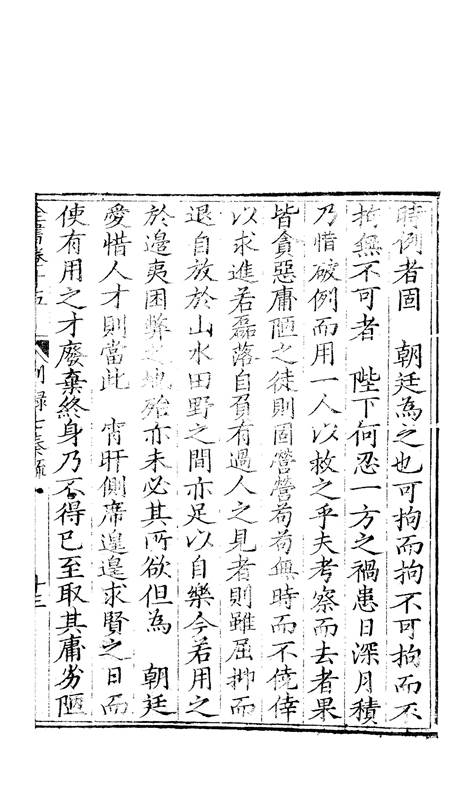 時例者固　朝廷為之也可拘而拘不可拘而不
拘無不可者　陛下何忍一方之禍患日深月積
乃惜破例而用一人以救之乎夫考察而去者果
皆貪惡庸陋之徒則固營營苟苟無時而不僥倖
以求進若磊落自負有過人之見者則雖屈抑而
退自放於山水田野之間亦足以自樂今若用之
於邊夷困弊之地殆亦未必其所欲但為　朝廷
愛惜人才則當此　宵旰側席遑遑求賢之日而
使有用之才廢棄終身乃不得已至取其庸劣陋
全書卷十五　別錄七奏疏　十三